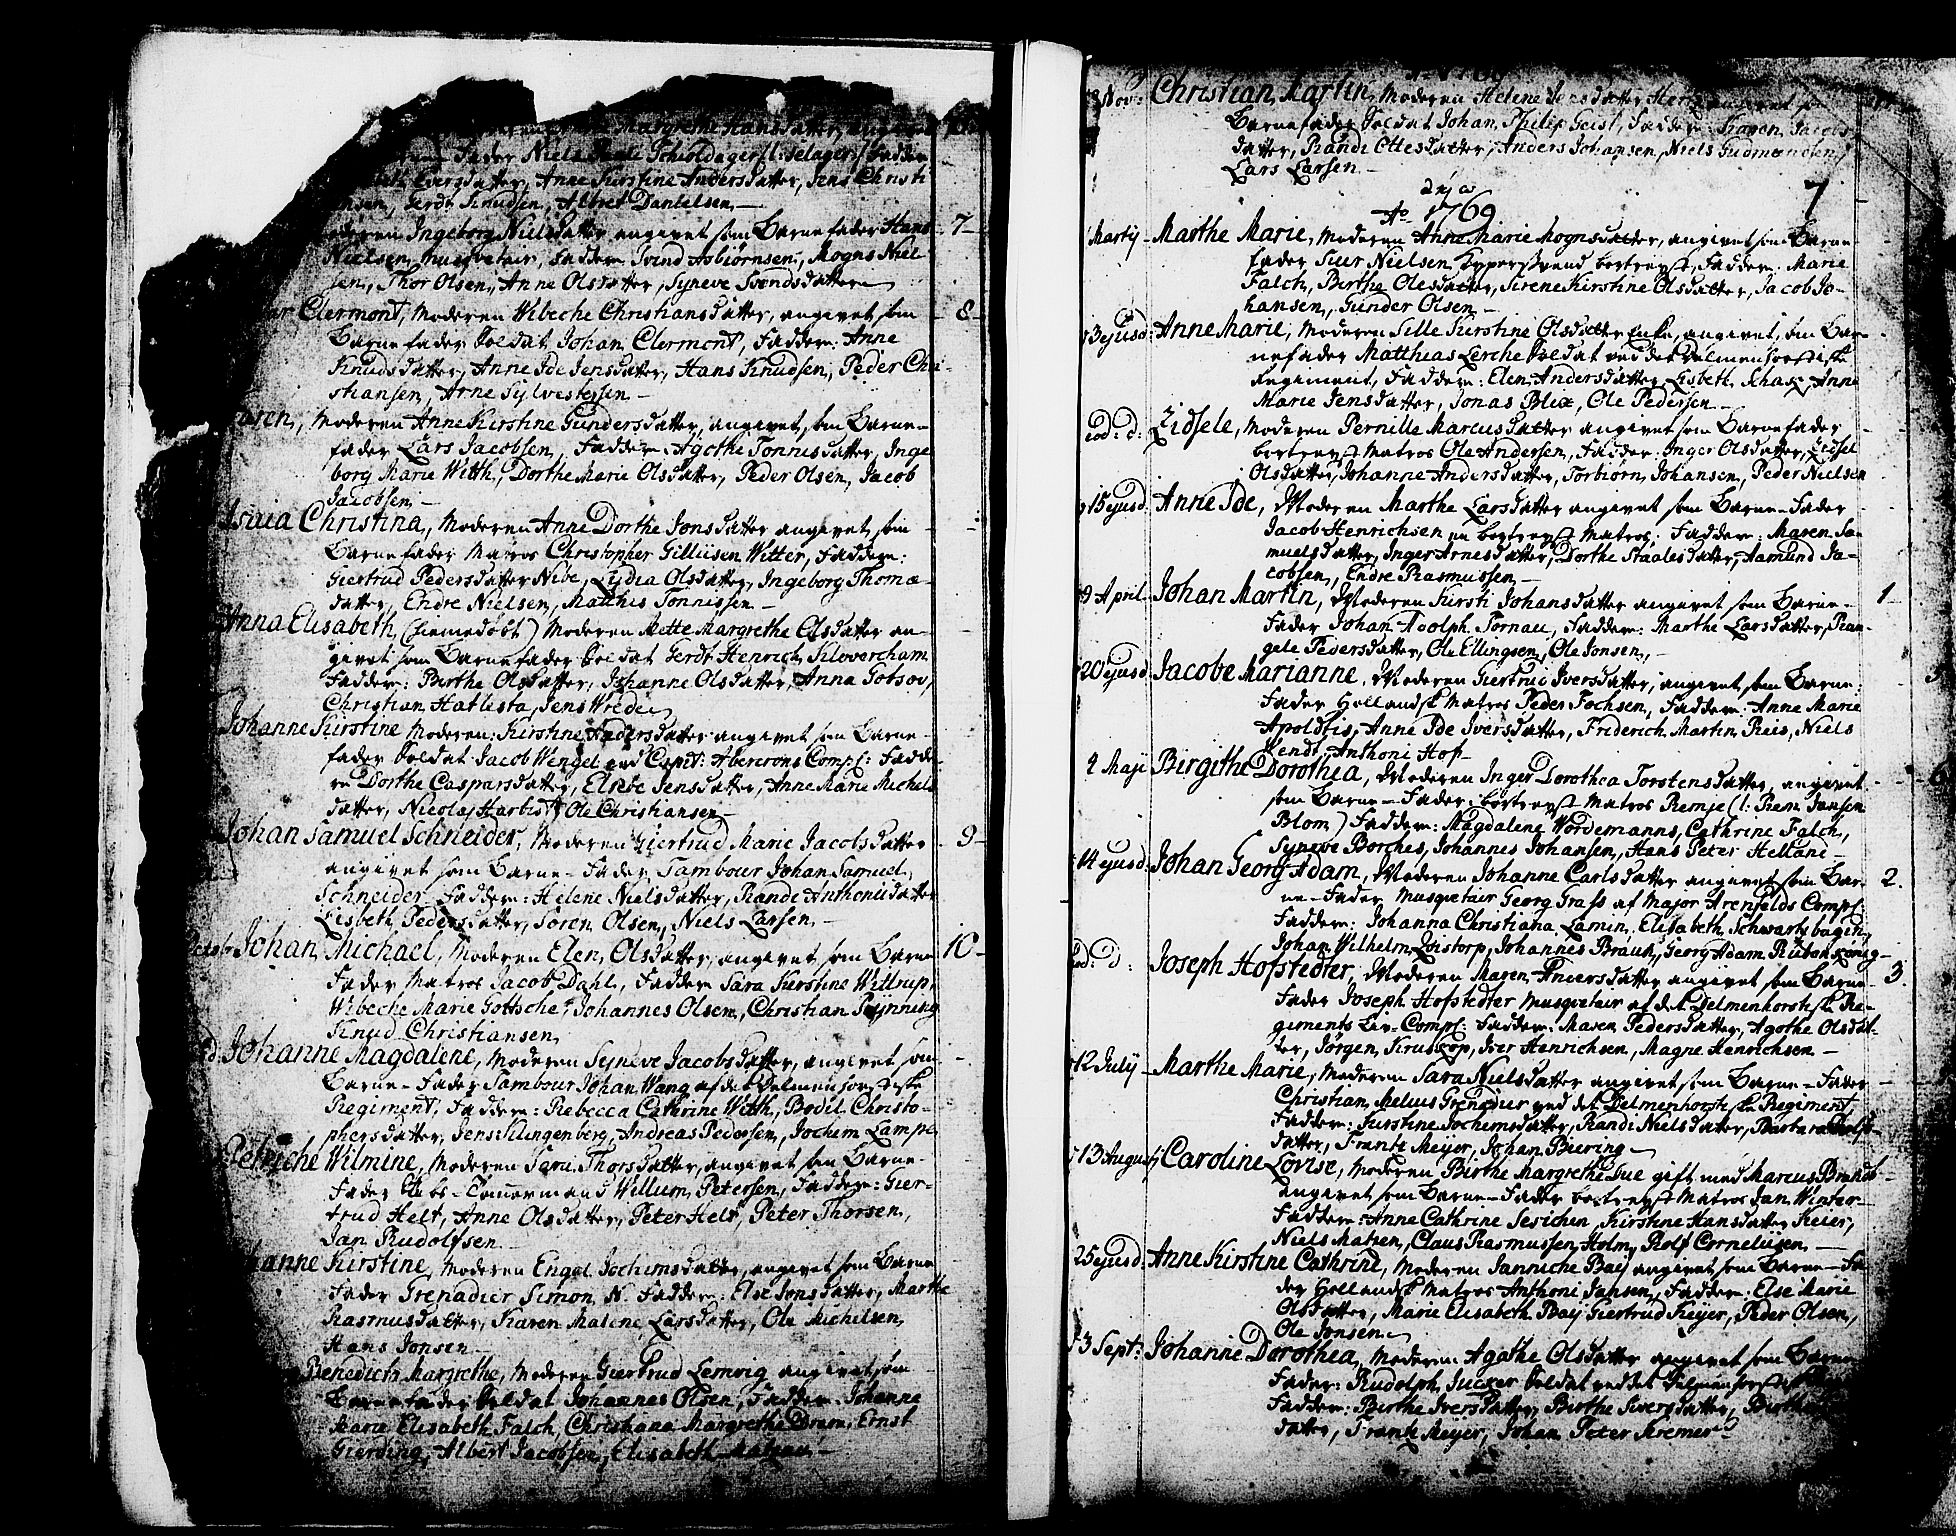 Margrethe Hansdatter, angivet
Fader Niels
datter, Anne Kirstine Andersdatter, Jens Christi-
ansen, Gerdt Knudsen, Albret Danielsen
Moderen Ingeborg Nielsdatter angivet som Barnefader Hans 7
Nielsen, Musqvetair, Faddere Svend Asbiørnsen, Mogns Niel-
sen, Thor Olsen, Anne Olsdatter, Syneve Svendsdatter
Clermont, Moderen Wibeche Christiansdatter, angivet som 8
Barnefader Soldat Johan Clermont, Faddere: Anne
Knudsdatter, Anne Ide Jensdatter, Hans Knudsen, Peder Chri-
stiansen, Arne Sylvestersen
Karen, Moderen Anne Kirstine Gundersdatter, angivet som Barne-
fader Lars Jacobsen, Faddere Agothe Tonnisdatter, Inge
borg Marie Witth, Dorthe Marie Olsdatter, Peder Olsen, Jacob
Jacobsen
Isaia Christina, Moderen Anne Dorthe Jonsdatter angivet som
Barnefader Matros Christopher Gilliisen Witter, Faddere:
Giertrud Pedersdatter Nibe, Lydia Olsdatter, Ingeborg Thomæ-
datter, Endre Nielsen, Matthis Tonnissen
Anna Elisabeth (hiemedøbt) Moderen Mette Margrethe Olsdatter an-
givet som Barnefader Soldat Gerdt Henrich Klovercham
Faddere: Birthe Olsdatter, Johanne Olsdatter, Anna Gotsov,
Christian Hatlesta, Jens Wrede
Johanne Kirstine Moderen: Kirstine Andersdatter angivet som Barne-
fader Soldat Jacob Wengel ved Capit: Abercrons Comp: Fadde-
re Dorthe Caspersdatter, Elsebe Jensdatter, Anne Marie Michels
datter, Nicolaj Harbist, Ole Christiansen
Johan Samuel Schneider, Moderen Giertrud Marie Jacobsdatter 9
angivet som Barne-Fader Tambour Johan Samuel
Schneider, Faddere: Helene Nielsdatter, Randi Anthonisdatter
Lisbeth Pedersdatter, Soren Olsen, Niels Larsen
Johan Michael, Moderen Elen Olsdatter, angivet som Barne 10
Fader Matros Jacob Dahl, Faddere Sara Kirstine Wittrup,
Wibeche Marie Gottsche, Johannes Olsen, Christian Rynning
Knud Christiansen
Johanne Magdalene, Moderen Syneve Jacobsdatter, angivet som
Barne-Fader Tambour Johan Wang af det Delmenhorstske
Regiment, Faddere: Rebecca Cathrine Witth, Bodil Christo-
phersdatter, Jens Klingenberg, Andreas Pedersen, Jochim Lampe
Petriche Wilmine, Moderen Sara Thorsdatter, angivet som Barne-
Fader Skibs-Tømmermand Willum Petersen, Faddere: Gier-
trud Helt, Anne Olsdatter, Peter Helt, Peter Thorsen,
Jan Rudolfsen
Johanne Kirstine, Moderen Engel Jochimsdatter, angivet som Barne
Fader Grenadier Simon N. Faddere: Else Jonsdatter, Marthe
Rasmusdatter, Karen Malene Larsdatter, Ole Michelsen,
Hans Jonsen
Benedicth Margrethe, Moderen Giertrud Lemvig angivet som
Barnefader Soldat Johannes Olsen, Faddere: Johanne
Marie Elisabeth Falch, Christiana Margrethe Dram, Ernst
Gierding, Albert Jacobsen, Elisabeth
Nov: Christian Martin, Moderen Helene
Barnefader Soldat Johan Philip Geist, Faddere: Karen Jacobs
datter, Randi Ottesdatter, Anders Johansen, Niels Gudmundsen,
Lars Larsen
7
Ao 1769
Martij Marthe Marie, Moderen Anne Marie Mognsdatter, angivet som Barne
fader Siur Nielsen bortreyst, Faddere: Marie
Falch, Birthe Olesdatter, Sirene Kirstine Olsdatter, Jacob Jo-
hansen, Gunder Olsen
3 ejusd: Anne Marie, Moderen Sille Kirstine Olsdatter Enke, angivet som Bar-
nefader Matthias Lerche Soldat ved det Delmenhorstske
Regiment, Faddere: Elen Andersdatter, Lisbeth Schax, Anne
Marie Jensdatter, Jonas Blix, Ole Pedersen
eod: d: Zidsele, Moderen Pernille Marcusdatter angivet som Barnefader
bortreyst Matros Ole Andersen, Faddere: Inger Olsdatter, Zidsel
Olsdatter, Johanne Andersdatter, Torbiørn Johansen, Peder Nielsen
15 ejusd Anne Ide, Moderen Marthe Larsdatter angivet som Barne-Fader
Jacob Henrichsen en bortreyst Matros. Faddere: Maren Sa-
muelsdatter, Inger Arnesdatter, Dorthe Staalesdatter, Aamund Ja-
cobsen, Endre Rasmussen
9 April Johan Martin, Moderen Kirsti Johansdatter angivet som Barne- 1
Fader Johan Adolph Tornau, Faddere: Marthe Larsdatter, Ran-
gele Pedersdatter, Ole Ellingsen, Ole Jonsen,
20 ejusd Jacobe Marianne, Moderen Giertrud Iversdatter, angivet som Barne-
Fader Hollandsk Matros Peder Fochsen, Faddere: Anne Marie
Apoldtis, Anne Ide Iversdatter, Friderich Martin Reis, Niels
Wendt, Anthoni Hop
4 Maji Birgithe Dorothea, Moderen Inger Dorothea Torstensdatter, angivet 6
som Barne-Fader bortreyst Matros Remje (l: Rem Jansen
Blom) Faddere: Magdalene Wordemanns, Cathrine Falch,
Syneve Borches, Johannes Johansen, Hans Peter Helland
14 ejusd: Johan Georg Adam, Moderen Johanne Carlsdatter angivet som Bar- 2.
ne-Fader Musqvetair Georg Grass af Major Arenfelds Comp:
Faddere: Johanna Christiana Lamin, Elisabeth Schwartzbagin,
Johan Wilhelm Zoistorp, Johannes Brauk, Georg Adam
eod: d: Joseph Hofstedter, Moderen Maren Aneersdatter angivet som Barne- 3.
Fader Joseph Hofstedter Musqvetair af det Delmenhorstske Re-
giments Liv-Comp: Faddere: Maren Pedersdatter, Agothe Olsdat-
ter, Jørgen Krustrop, Iver Henrichsen, Magne Henrichsen
12 Julij Marthe Marie, Moderen Sara Nielsdatter angivet som Barne-Fader
Christian Melius Grenadier ved det Delmenhorstske Regiment
Faddere: Kirstine Jochimsdatter, Randi Nielsdatter, Barbara
datter, Frantz Meijer, Johan Biering
13 August Caroline Lovise, Moderen Birthe Margrethe Due gift med Marcus Brandt
angivet som Barne-Fader bortreyst Matros Jan Winter
Faddere: Anne Cathrine Sesichen, Kirstine Hansdatter Keier,
Niels Matzen, Claus Rasmussen Holm, Rolf Cornelusen
25 ejusd: Anne Kirstine Cathrine, Moderen Janniche Baij angivet som Barne-Fa
der Hollandsk Matros Anthoni Jansen, Faddere: Else Marie
Olsdatter, Marie Elisabeth Baij, Giertrud Keijer, Peder Olsen,
Ole Jonsen
3 Sept: Johanne Dorothea, Moderen Agathe Olsdatter angivet som Barne
Fader: Rudolph Sucker Soldat ved det
Faddere: Birthe Iversdatter, Birthe Siversdatter, Birthe
datter, Frantz Meijer, Johan Peter Kremer